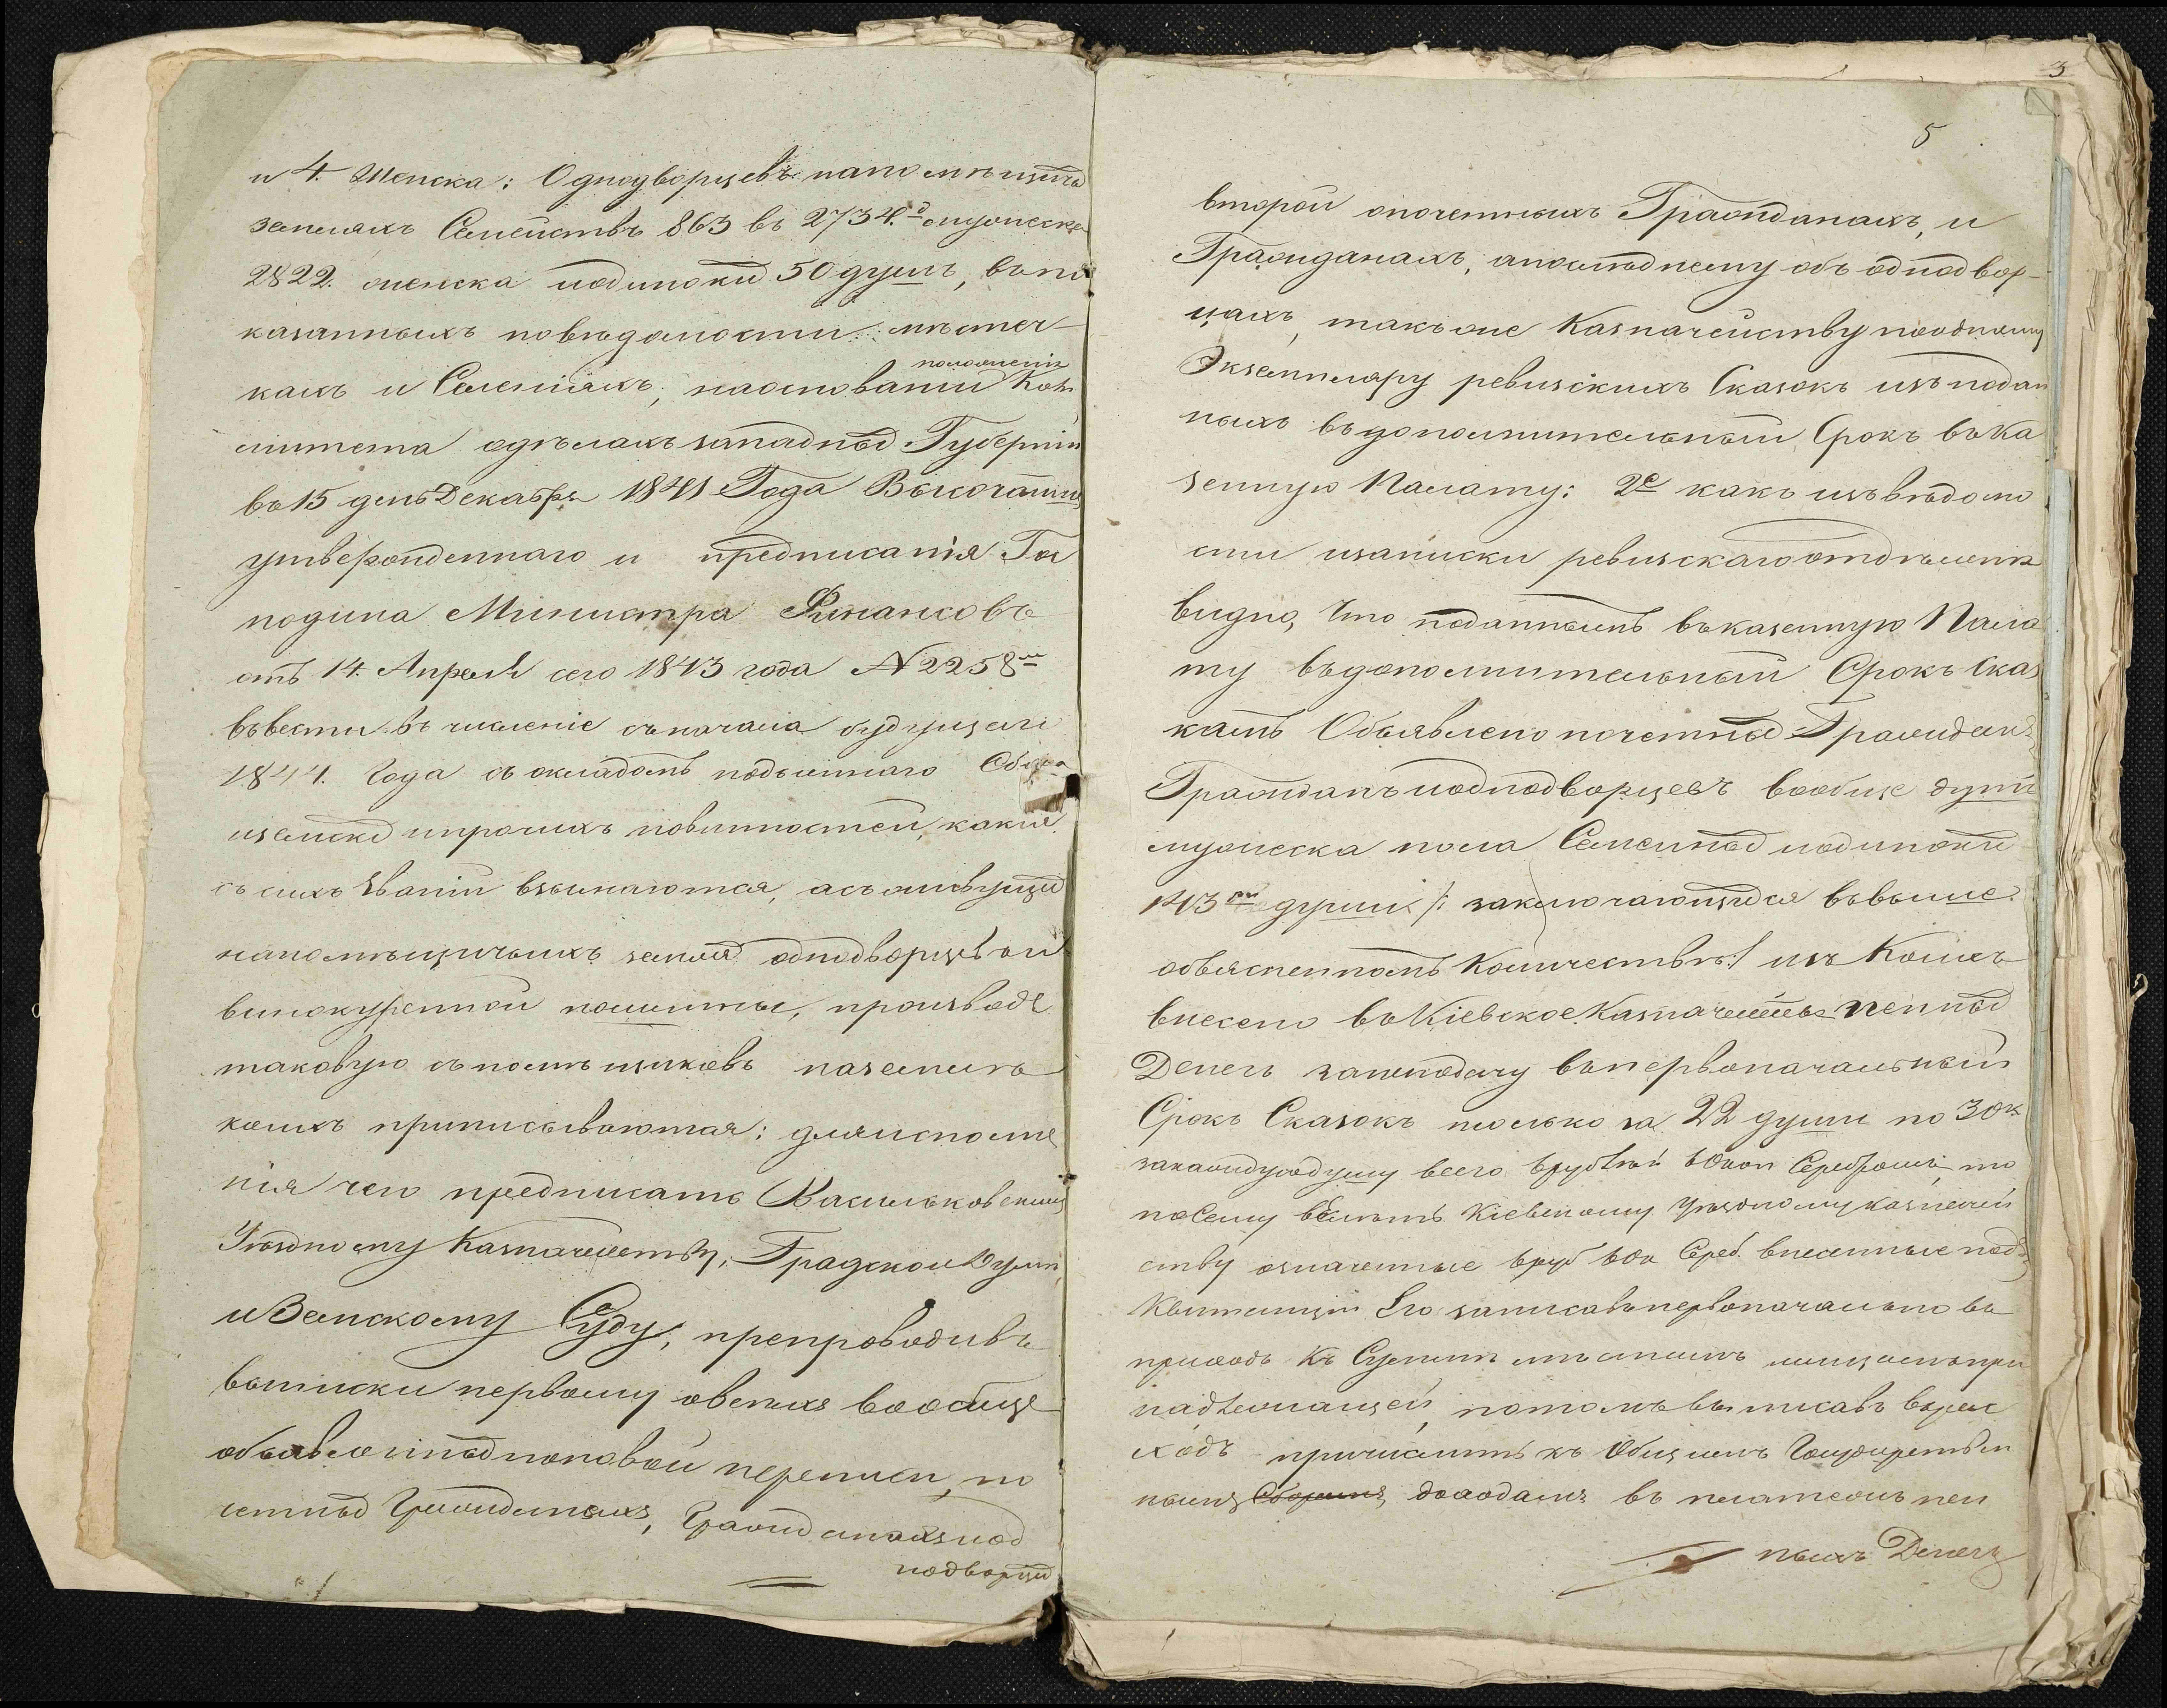 и 4. Женска: Однодворцевъ на помѣщичь
земляхъ Семействъ 863 въ 2734. мужеска
2822. женска и одинокихъ 50 душъ, въ по
казанныхъ по вѣдомости мѣстеч-
положенія
кахъ и Селеніяхъ, на основаніи Ком
митета о дѣлахъ западныхъ Губерній
въ 15 день Декабря 1841 Года Высочайше
утвержденнаго и предписанія Гос
подина Министра Финансовъ
отъ 14. Апреля сего 1843 года N 2258
ввести въ численіе съ начала будущаго
1844. Года съ окладомъ подымнаго Сбора
и земскихъ и прочихъ повинностей, какіе
съ сихъ званій взымаются, а съ живущихъ
на помѣщичьихъ земляхъ однодворцевъ и
винокуренной пошлины, производя
таковую съ помѣщиковъ на земляхъ
коихъ приписываются: для исполне
нія чего предписать Васильковскимъ
Уѣздному Казначейству, Градской Думѣ,
и Земскому Суду, препроводивъ
выписки первому о всѣхъ вообще
объявленныхъ по новой переписи, по
четныхъ Гражданахъ, Гражданахъ и од
нодворцахъ
3
5
второй о почетныхъ Гражданахъ, и
Гражданахъ, а послѣднему объ однодвор-
цахъ, также Казначейству по одному
Экземпляру ревизскихъ Сказокъ изъ подан
ныхъ въ дополнительный Срокъ въ Ка
зенную Палату: 2е какъ изъ вѣдомо
сти и записки ревизскаго отдѣленія
видно, Что поданнымъ въ казенную Пала
ту въ дополнительный Срокъ Сказ
камъ Объявлено почетныхъ Гражданъ,
Гражданъ и однодворцевъ вообще душъ
мужеска пола Семейныхъ и одинокихъ
143 души /: заключающихся въ выше
объясненномъ Количествѣ :/ изъ Коихъ
внесено въ Кіевское Казначейство пенныхъ
Денегъ за неподачу въ первоначальный
Срокъ Сказокъ только за 22 души по 30 к
за каждую душу всего 6 рублей 60 коп Серебромъ, то
по Сему велѣть Кіевскому уѣздному казначей
ству означенные 6 руб 60 к Сереб. внесенные подъ
Квитанціи Его записавъ первоначально въ
приходъ къ Суммѣ
надлежащей, потомъ выписавъ въ рас
ходъ причислить къ Общимъ Государствен
нымъ доходамъ въ платежъ пен
ныхъ Денегъ